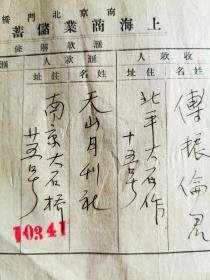 南京北門橋
上海商業儲蓄
匯款條
收款人
匯款人
姓名
住址
姓名
住址
傅振倫君
北平大石作
十五号
天山月刊社
南京大石橋
廿五号
10341